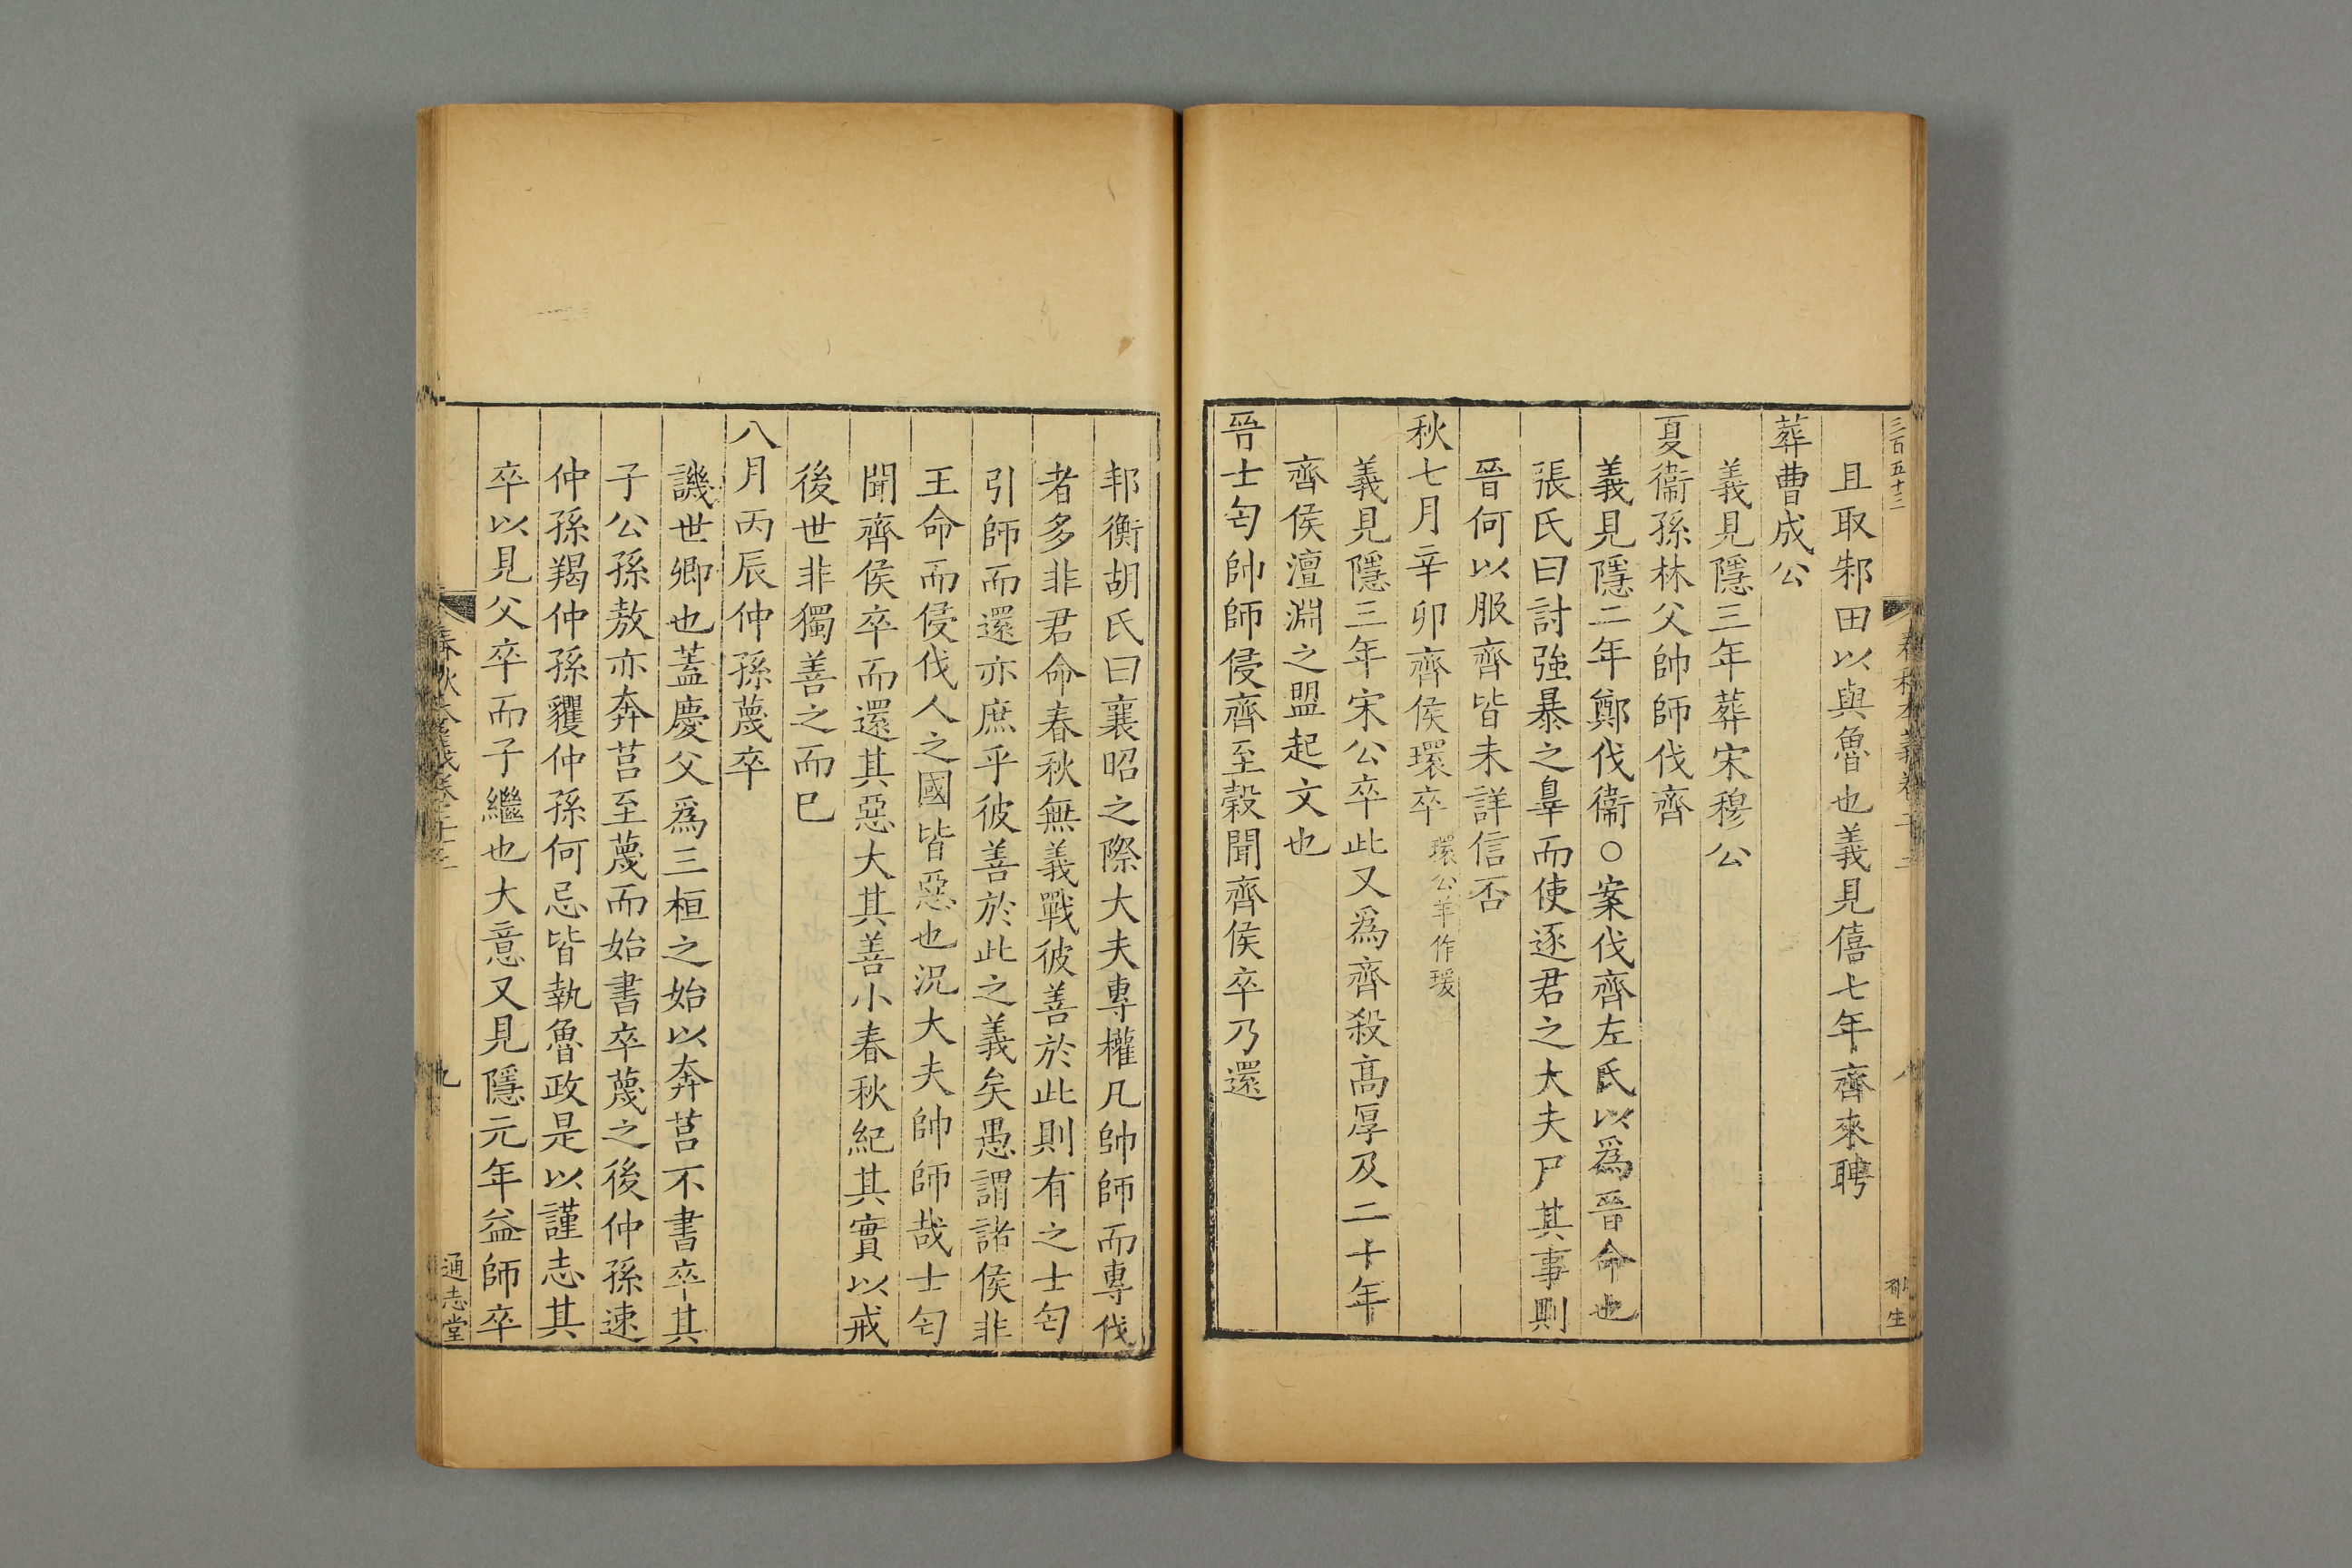 三百五十三
且取邾田以與魯也義見僖七年齊來聘
葬曹成公
義見隱三年葬宋穆公
夏衞孫林父帥師伐齊
義見隱二年鄭伐衞○案伐齊左氏以爲晉命也
張氏曰討強暴之辠而使逐君之大夫尸其事則
晉何以服齊皆未詳信否
秋七月辛卯齊侯環卒環公羊作瑗
義見隱三年宋公卒此又爲齊殺高厚及二十年
齊侯澶淵之盟起文也
晉士匄帥師侵齊至穀聞齊侯卒乃還
邦衡胡氏曰襄昭之際大夫專權凡帥師而專伐
者多非君命春秋無義戰彼善於此則有之士匄
引師而還亦庶乎彼善於此之義矣愚謂諸侯非
王命而侵伐人之國皆惡也況大夫帥師哉士匄
聞齊侯卒而還其惡大其善小春秋紀其實以戒
後世非獨善之而已
八月丙辰仲孫蔑卒
譏世卿也蓋慶父爲三桓之始以奔莒不書卒其
子公孫敖亦奔莒至蔑而始書卒蔑之後仲孫速
仲孫羯仲孫貜仲孫何忌皆執魯政是以謹志其
卒以見父卒而子繼也大意又見隱元年益師卒
春秋本義卷二十二
九
通志堂